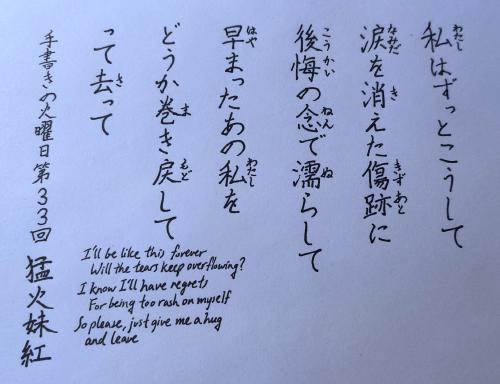 わたし
私はずっとこうして
なみだ き きずあと
涙を消えた傷跡に
こうかい ねん ぬ
後悔の念で濡らして
はや わたし
早まったあの私を
ま もど
どうか巻き戻して
さ
って去って
手書きの火曜日第33回 猛火妹紅
I'll be like this forever
Will the tears keep overflowing?
I know I'll have regrets
For being too rash on myself
So please, just give me a hug
and leave